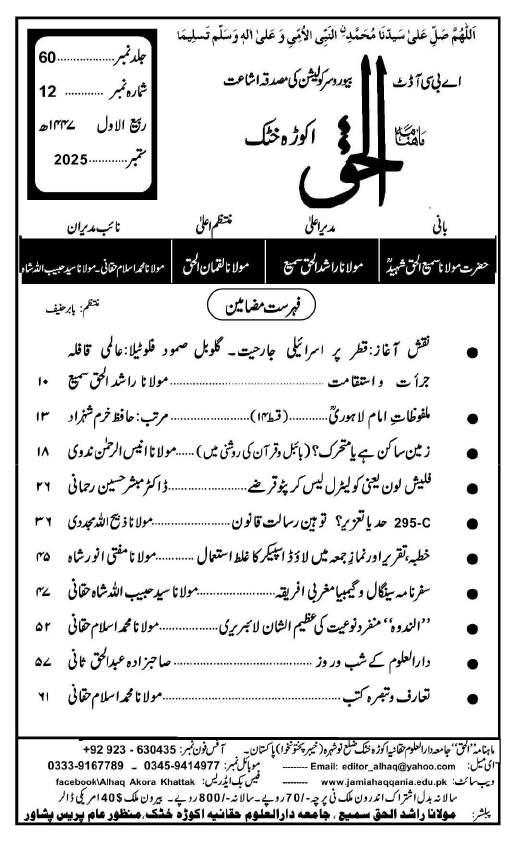 اَللّٰهُمَّ صَلِّ عَلٰى سَيِّدِنَا مُحَمَّدِنِ النَّبِيِّ الْاُمِّيِّ وَعَلٰى اٰلِهٖ وَسَلِّمْ تَسْلِيْمًا
اے بی سی آڈٹ بیورو سرکولیشن کی مصدقہ اشاعت
ماہنامہ الحق اکوڑہ خٹک
جلد نمبر............... 60
شمارہ نمبر ............ 12
ربیع الاول ۱۴۴۷ھ
ستمبر ............ 2025
بانی مدیر اعلیٰ منتظم اعلیٰ نائب مدیران
حضرت مولانا سمیع الحق شہیدؒ مولانا راشد الحق سمیع مولانا لقمان الحق مولانا محمد اسلام حقانی۔ مولانا سید حبیب اللہ شاہ
فہرست مضامین منتظم: بابر حنیف
● نقش آغاز: قطر پر اسرائیلی جارحیت۔ گلوبل صمود فلوٹیلا: عالمی قافلہ
جرأت و استقامت .............................. مولانا راشد الحق سمیع ۱۰
● ملفوظات امام لاہوریؒ............ (قسط ۱۴)............ مرتب: حافظ خرم شہزاد ۱۳
● زمین ساکن ہے یا متحرک؟ (بائبل و قرآن کی روشنی میں) ...... مولانا انیس الرحمٰن ندوی ۱۸
● فلیش لون یعنی کولیٹرل لیس کرپٹو قرضے ............ ڈاکٹر مبشر حسین رحمانی ۲۶
● 295-C حد یا تعزیر؟ توہین رسالت قانون ............ مولانا ذبیح اللہ مجددی ۳۶
● خطبہ، تقریر اور نماز جمعہ میں لاؤڈ اسپیکر کا غلط استعمال ...... مولانا مفتی انور شاہ ۴۵
● سفرنامہ سینگال و گیمبیا مغربی افریقہ............ مولانا سید حبیب اللہ شاہ حقانی ۴۷
● ”الندوہ“ منفرد نوعیت کی عظیم الشان لائبریری ............ مولانا محمد اسلام حقانی ۵۲
● دارالعلوم کے شب و روز ............ صاحبزادہ عبدالحق ثانی ۵۷
● تعارف و تبصرہ کتب ............ مولانا محمد اسلام حقانی ۶۱
ماہنامہ ”الحق“ جامعہ دارالعلوم حقانیہ اکوڑہ خٹک ضلع نوشہرہ (خیبر پختونخوا) پاکستان۔ آفس فون نمبر: 630435 - 923 92+
ای میل: Email: editor_alhaq@yahoo.com ...... موبائل نمبر: 0345-9414977 ...... 0333-9167789
ویب سائٹ: www.jamiahaqqania.edu.pk ...... فیس بک ایڈریس: facebook\Alhaq Akora Khattak
سالانہ بدل اشتراک اندرون ملک فی پرچہ -/70 روپے۔ سالانہ -/800 روپے۔ بیرون ملک 40$ امریکی ڈالر
پبلشر: مولانا راشد الحق سمیع، جامعہ دارالعلوم حقانیہ اکوڑہ خٹک، منظور عام پریس پشاور